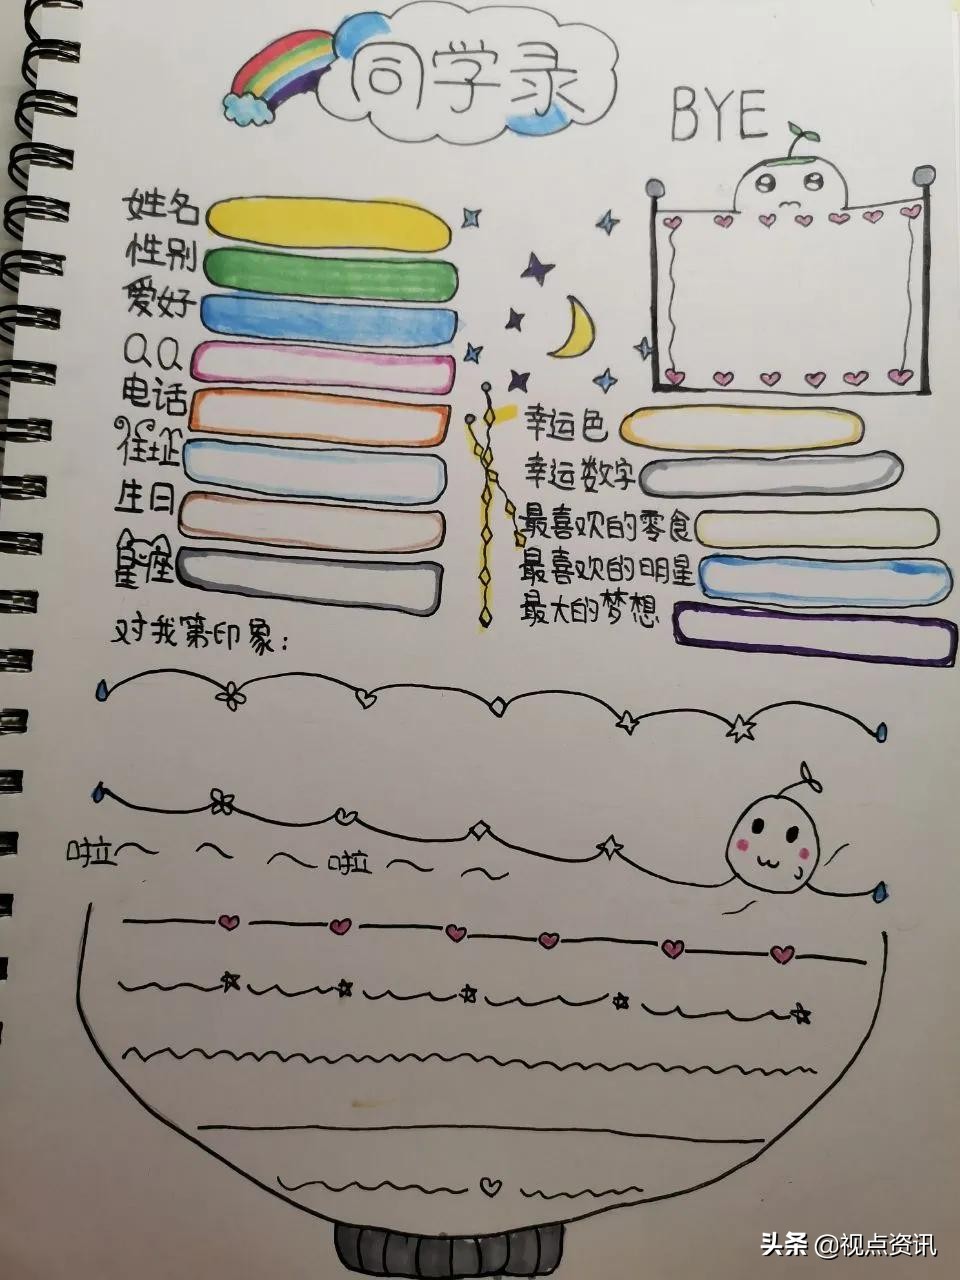 同学录
BYE
姓名
性别
爱好
QQ
电话
住址
生日
星座
幸运色
幸运数字
最喜欢的零食
最喜欢的明星
最大的梦想
对我第一印象：
啦 啦
头条 @视点资讯